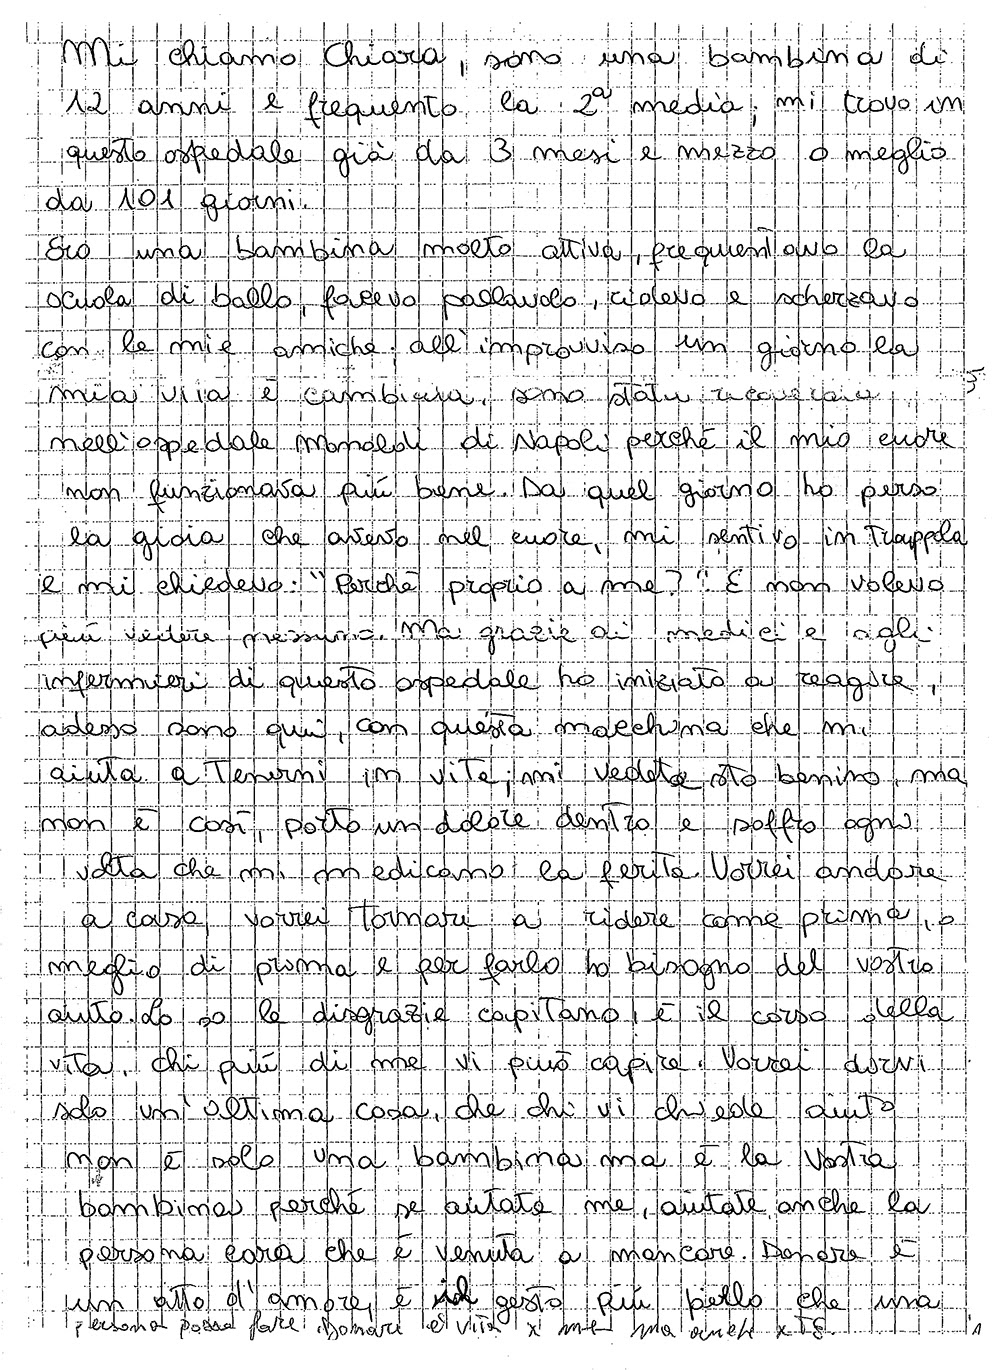 Mi chiamo Chiara, sono una bambina di
12 anni e frequento la 2ª media, mi trovo in
questo ospedale già da 3 mesi e mezzo o meglio
da 101 giorni.
Ero una bambina molto attiva, frequentavo la
scuola di ballo, facevo pallavolo, ridevo e scherzavo
con le mie amiche, all'improvviso un giorno la
mia vita è cambiata, sono stata ricoverata
nell'ospedale Monaldi di Napoli perché il mio cuore
non funzionava più bene. Da quel giorno ho perso
la gioia che avevo nel cuore, mi sentivo in trappola
e mi chiedevo: "Perché proprio a me?". E non volevo
più vedere nessuno. Ma grazie ai medici e agli
infermieri di questo ospedale ho iniziato a reagire,
adesso sono qui, con questa macchina che mi
aiuta a tenermi in vita, mi vedete sto benino, ma
non è così, porto un dolore dentro e soffro ogni
volta che mi medicano la ferita. Vorrei andare
a casa, vorrei tornare a ridere come prima, o
meglio di prima e per farlo ho bisogno del vostro
aiuto. Lo so le disgrazie capitano, è il corso della
vita, chi più di me vi può capire. Vorrei dirvi
solo un'ultima cosa, che chi vi chiede aiuto
non è solo una bambina ma è la vostra
bambina perché se aiutate me, aiutate anche la
persona cara che è venuta a mancare. Donare è
un atto d'amore, è il gesto più bello che una
persona possa fare. Donare è vita x me ma anche x TE.